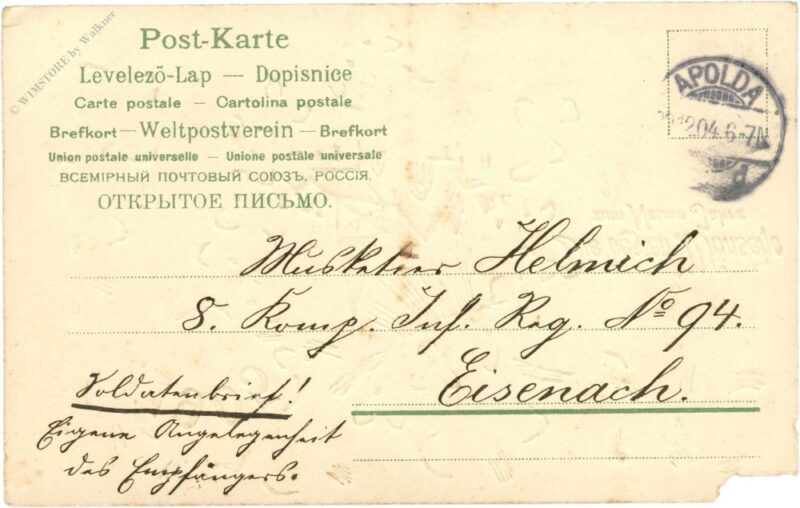 © WIMSTORE by Walkner
Post-Karte
Levelezō-Lap — Dopisnice
Carte postale — Cartolina postale
Brefkort — Weltpostverein — Brefkort
Union postale universelle — Unione postale universale
ВСЕМІРНЫЙ ПОЧТОВЫЙ СОЮЗЪ. РОССІЯ.
ОТКРЫТОЕ ПИСЬМО.
APOLDA
204.6-7N
Musketier Helmich
8. Komp. Inf. Reg. No 94.
Eisenach.
Soldatenbrief!
Eigene Angelegenheit
des Empfängers.